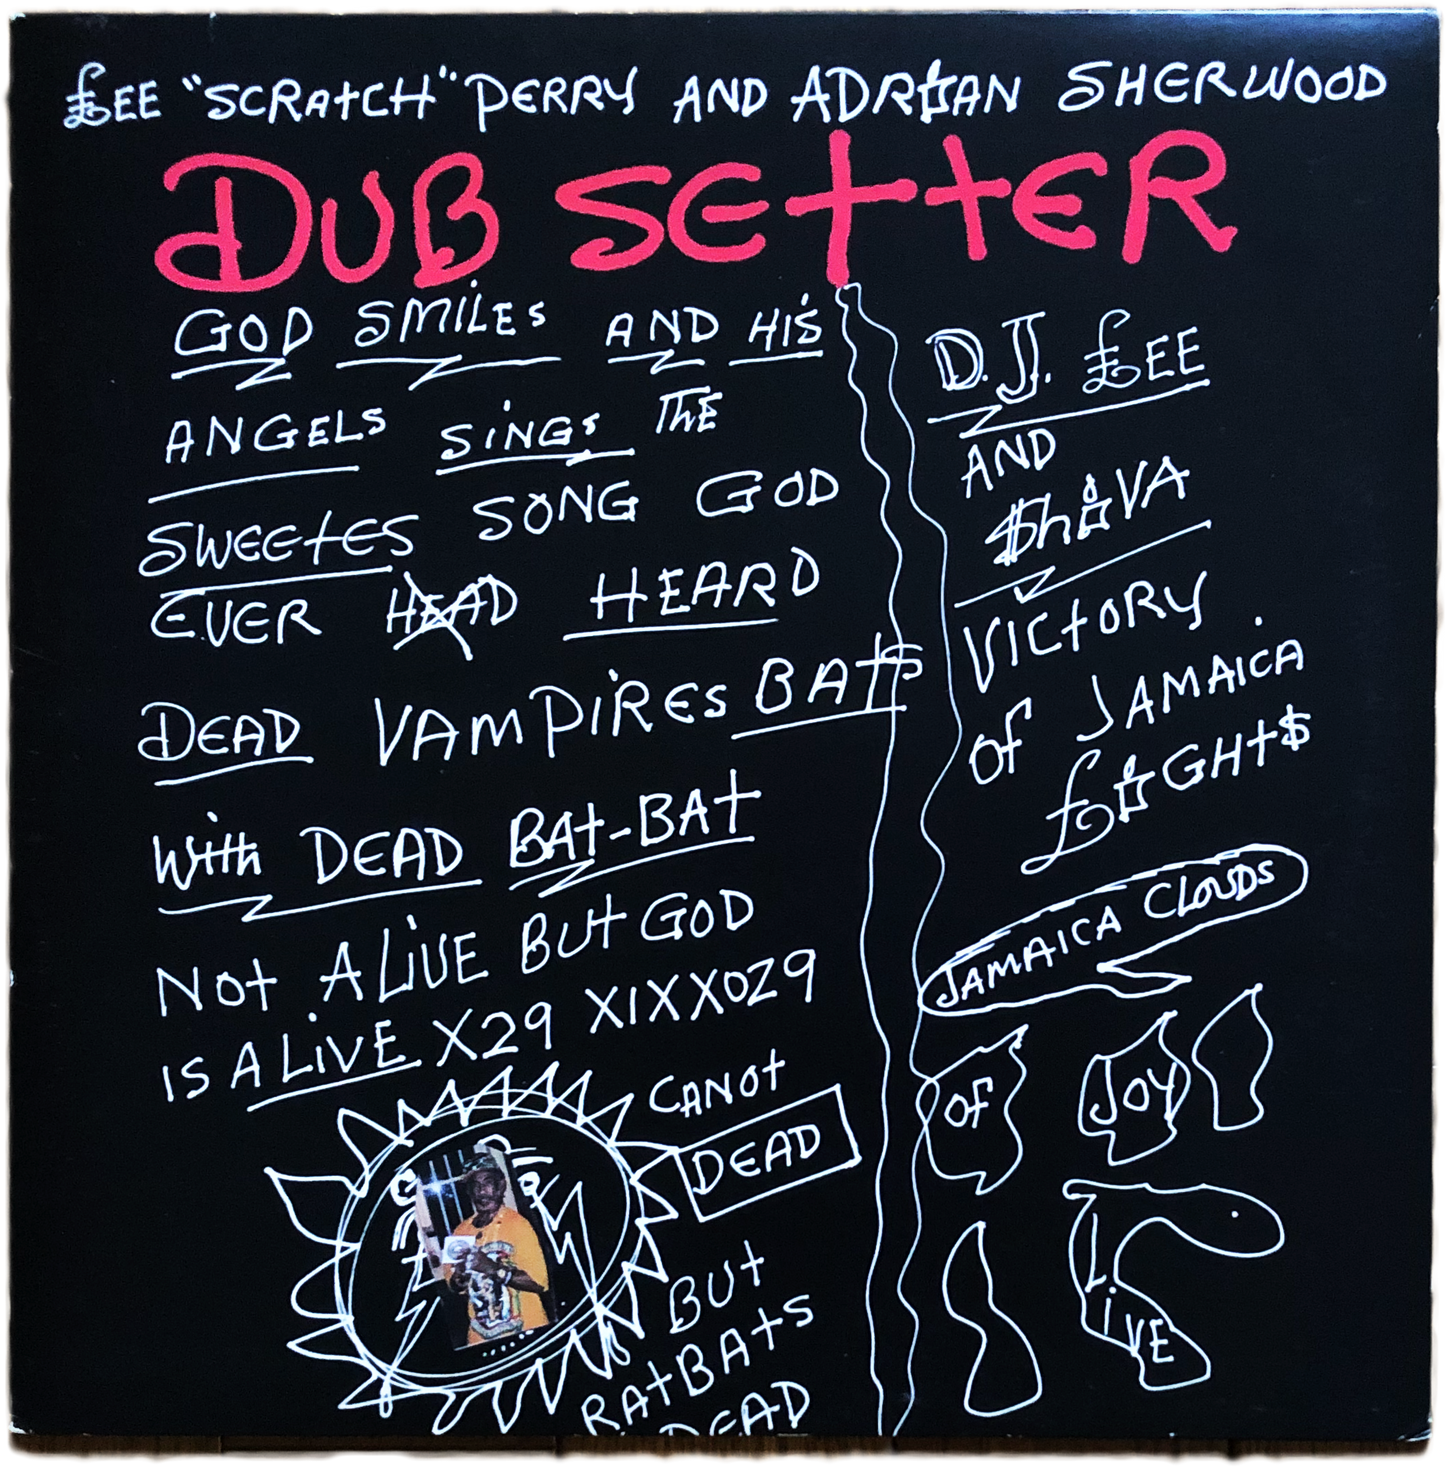 £EE "SCRAtCH" PERRY AND ADRIAN SHERWOOD
DUB SETTER
GOD SMiLES AND HiS
ANGELS SiNGS THE
SWEETES SONG GOD
EVER HEAD HEARD
DEAD VAMPiRES BATS
With DEAD BAt-BAT
Not ALiVE BUt GOD
IS ALiVE X29 XIXXOZ9
CANOt
DEAD
BUt
RAtBAtS
DEAD
D.J. £EE
AND
$hiVA
VICtORY
Of JAMAICA
£iGHt$
JAMAICA CLOUDS
Of JOY
LiVE